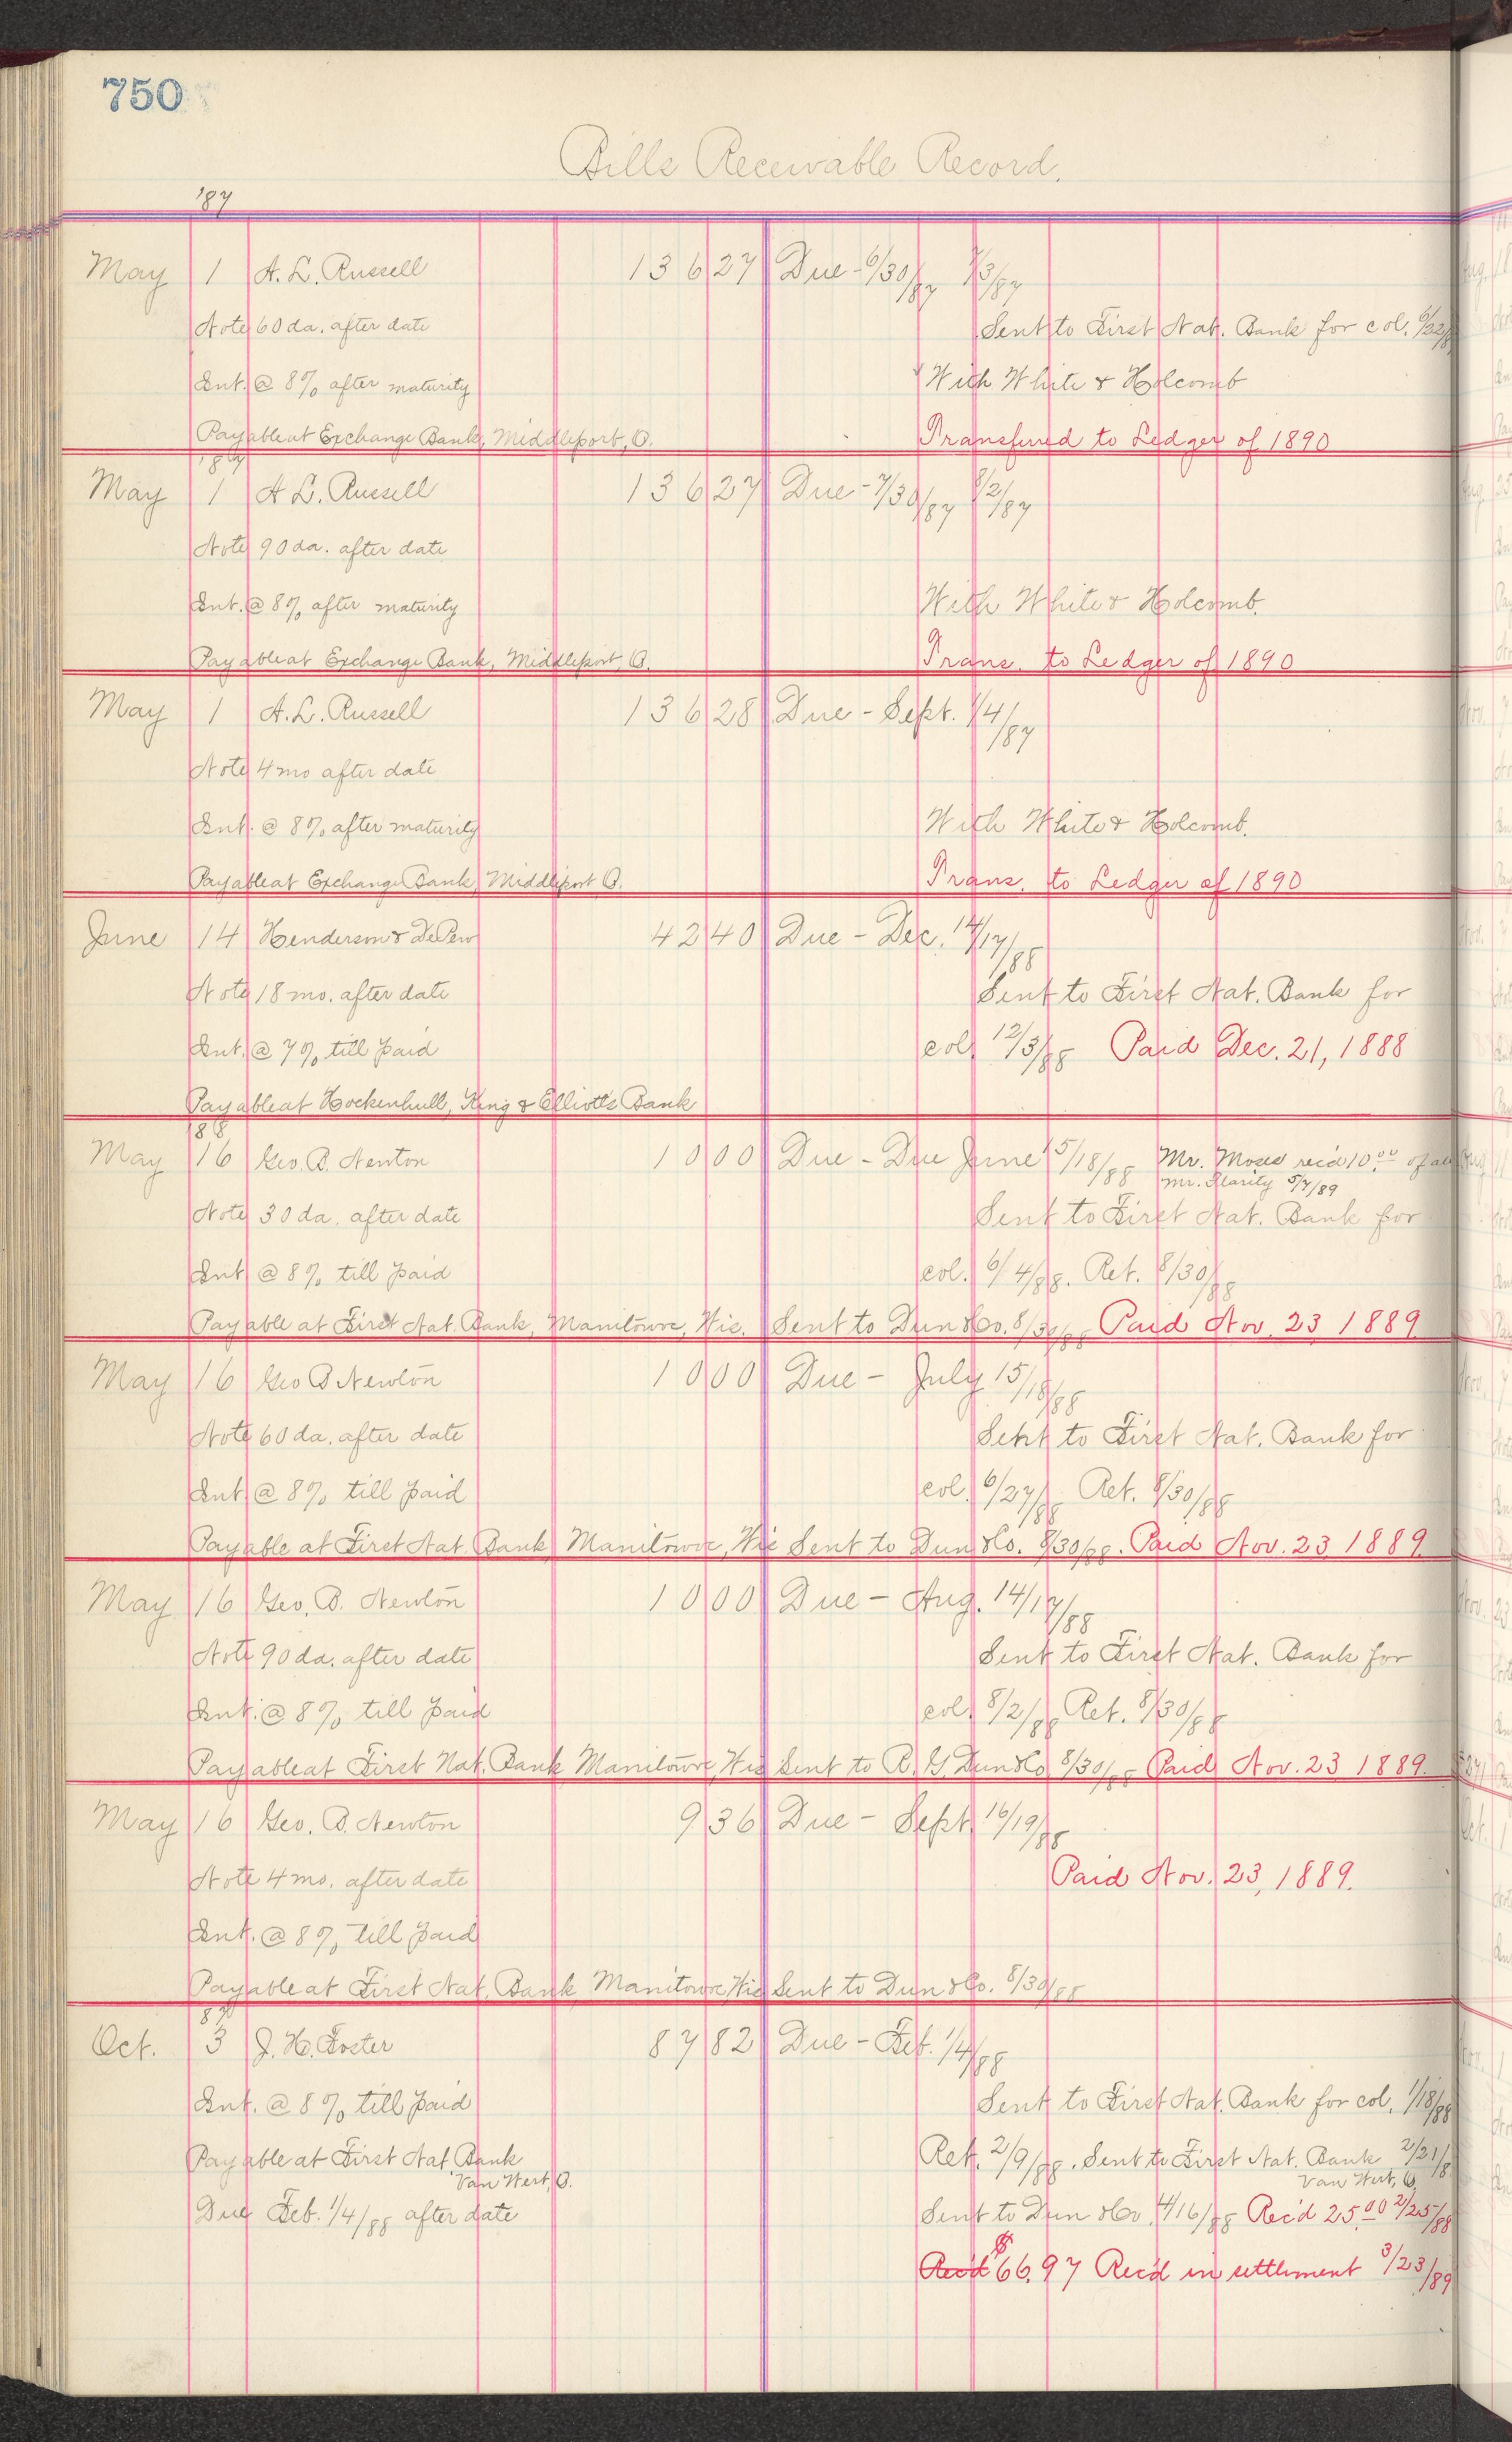 750
Bills Receivable Record.
'87
May 1 A. L. Russell 136 27 Due - 6/30/87 7/3/87
Note 60 da. after date Sent to First Nat. Bank for col. 6/22/8
Int. @ 8% after maturity With White & Holcomb
Payable at Exchange Bank, Middleport, O. Transferred to Ledger of 1890
'87
May 1 A L. Russell 136 27 Due - 7/30/87 8/2/87
Note 90 da. after date
Int. @ 8% after maturity With White & Holcomb.
Payable at Exchange Bank, Middleport, O. Trans. to Ledger of 1890
May 1 A. L. Russell 136 28 Due - Sept. 1/4/87
Note 4 mo after date
Int. @ 8% after maturity With White & Holcomb.
Payable at Exchange Bank, Middleport O. Trans. to Ledger of 1890
June 14 Henderson & DePew 42 40 Due - Dec. 14/17/88
Note 18 mo. after date Sent to First Nat. Bank for
Int. @ 7% till paid col. 12/3/88 Paid Dec. 21, 1888
Payable at Hockenhull, King & Elliott's Bank
'88
May 16 Geo. B. Newton 10 00 Due - Due June 15/18/88 Mr. Moses rec'd 10.00 of
Mr. Clarity 5/7/89
Note 30 da. after date Sent to First Nat. Bank for
Int @ 8% till paid col. 6/4/88. Ret. 8/30/88
Payable at First Nat. Bank, Manitowoc, Wis. Sent to Dun & Co. 8/30/88 Paid Nov. 23 1889
May 16 Geo B Newton 10 00 Due - July 15/18/88
Note 60 da. after date Sent to First Nat. Bank for
Int @ 8% till paid col. 6/27/88 Ret. 8/30/88
Payable at First Nat. Bank Manitowoc, Wis Sent to Dun & Co. 8/30/88. Paid Nov. 23 1889.
May 16 Geo. B. Newton 10 00 Due - Aug. 14/17/88
Note 90 da. after date Sent to First Nat. Bank for
Int. @ 8% till paid col. 8/2/88 Ret. 8/30/88
Payable at First Nat. Bank Manitowoc, Wis Sent to R. G. Dun & Co 8/30/88 Paid Nov. 23 1889.
May 16 Geo. B. Newton 9 36 Due - Sept. 16/19/88
Note 4 mo. after date Paid Nov. 23, 1889.
Int. @ 8% till paid
Payable at First Nat. Bank Manitowoc, Wis Sent to Dun & Co. 8/30/88
'87
Oct. 3 J. H. Foster 87 82 Due - Feb. 1/4/88
Int. @ 8% till paid Sent to First Nat. Bank for col. 1/18/88
Payable at First Nat. Bank Ret. 2/9/88. Sent to First Nat. Bank 2/21/8
Van Wert, O. Van Wert, O
Due Feb. 1/4/88 after date Sent to Dun & Co. 4/16/88 Rec'd 25.00 2/25/88
Rec'd $66.97 Rec'd in settlement 3/23/89